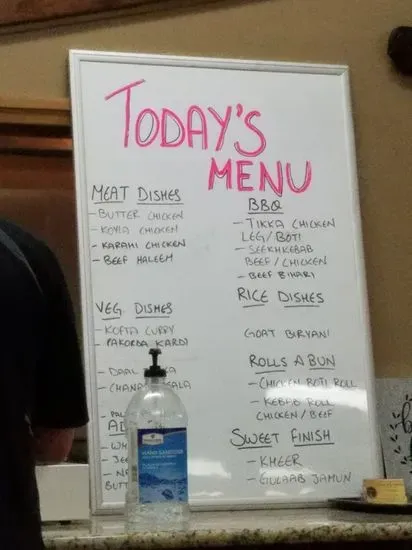 TODAY'S
MENU
MEAT DISHES
- BUTTER CHICKEN
- KOYLA CHICKEN
- KARAHI CHICKEN
- BEEF HALEEM
VEG DISHES
- KOFTA CURRY
PAKORDA KARDI
DAAL
CHANA
BBQ
- TIKKA CHICKEN
LEG/BOTI
- SEEKHKEBAB
BEEF/CHICKEN
- BEEF BIHARI
RICE DISHES
GOAT BIRYANI
ROLLS A BUN
- CHICKEN BOTI ROLL
- KEBAB ROLL
CHICKEN/BEEF
SWEET FINISH
- KHEER
- GULAAB JAMUN
HAND SANITIZER